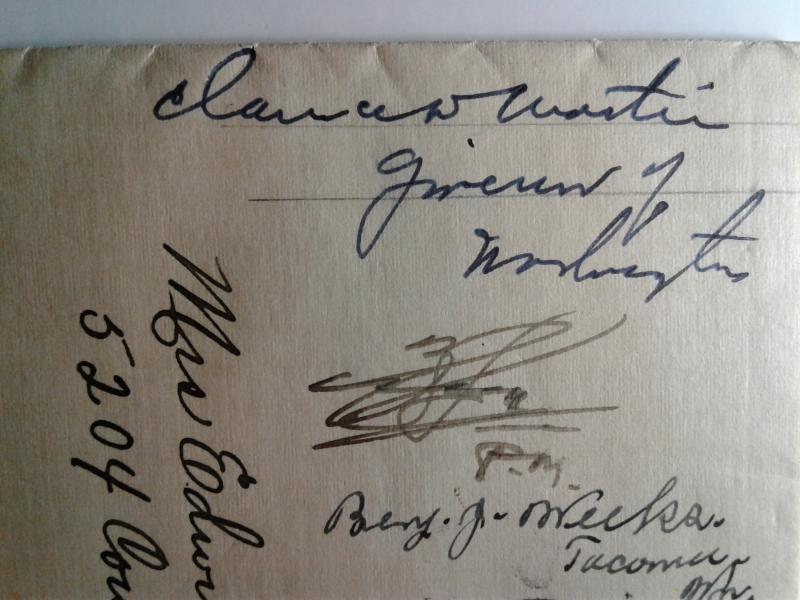 Clarence D Martin
Governor of
Washington
P.M.
Benj. J. Weeks.
Tacoma.
Wn.
Mrs Edw
5204